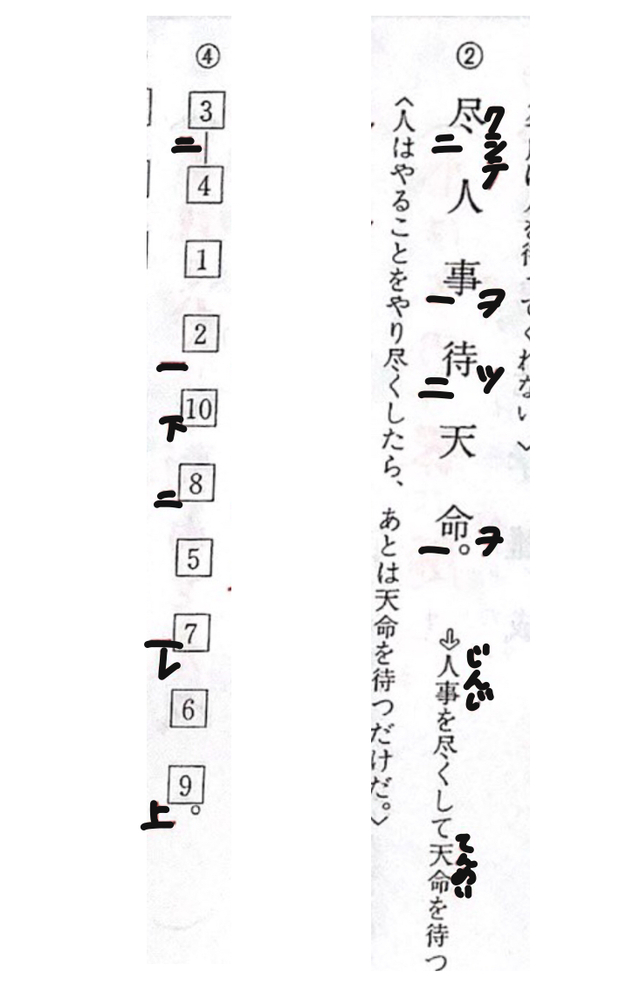 ②
尽クシテ二人事ヲ一待ツ二天命ヲ一。
⇩人事を尽くして天命を待つ
じんじ
てんめい
〈人はやることをやり尽くしたら、あとは天命を待つだけだ。〉
④
3二4 1 2一10下8二5 7一レ6 9上。